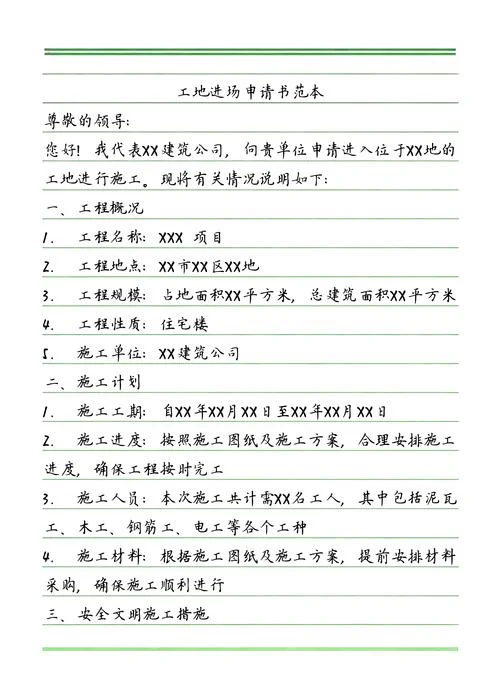 工地进场申请书范本
尊敬的领导:
您好! 我代表XX建筑公司, 向贵单位申请进入位于XX地的
工地进行施工。现将有关情况说明如下:
一、工程概况
1. 工程名称: XXX 项目
2. 工程地点: XX市XX区XX地
3. 工程规模: 占地面积XX平方米, 总建筑面积XX平方米
4. 工程性质: 住宅楼
5. 施工单位: XX建筑公司
二、施工计划
1. 施工工期: 自XX年XX月XX日至XX年XX月XX日
2. 施工进度: 按照施工图纸及施工方案, 合理安排施工
进度, 确保工程按时完工
3. 施工人员: 本次施工共计需XX名工人, 其中包括泥瓦
工、木工、钢筋工、电工等各个工种
4. 施工材料: 根据施工图纸及施工方案, 提前安排材料
采购, 确保施工顺利进行
三、安全文明施工措施